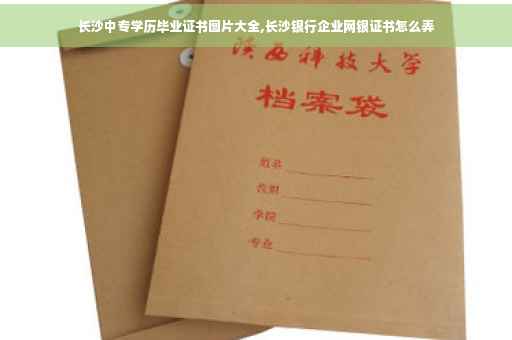 长沙中专学历毕业证书图片大全,长沙银行企业网银证书怎么弄
陕西科技大学
档案袋
学院
专业